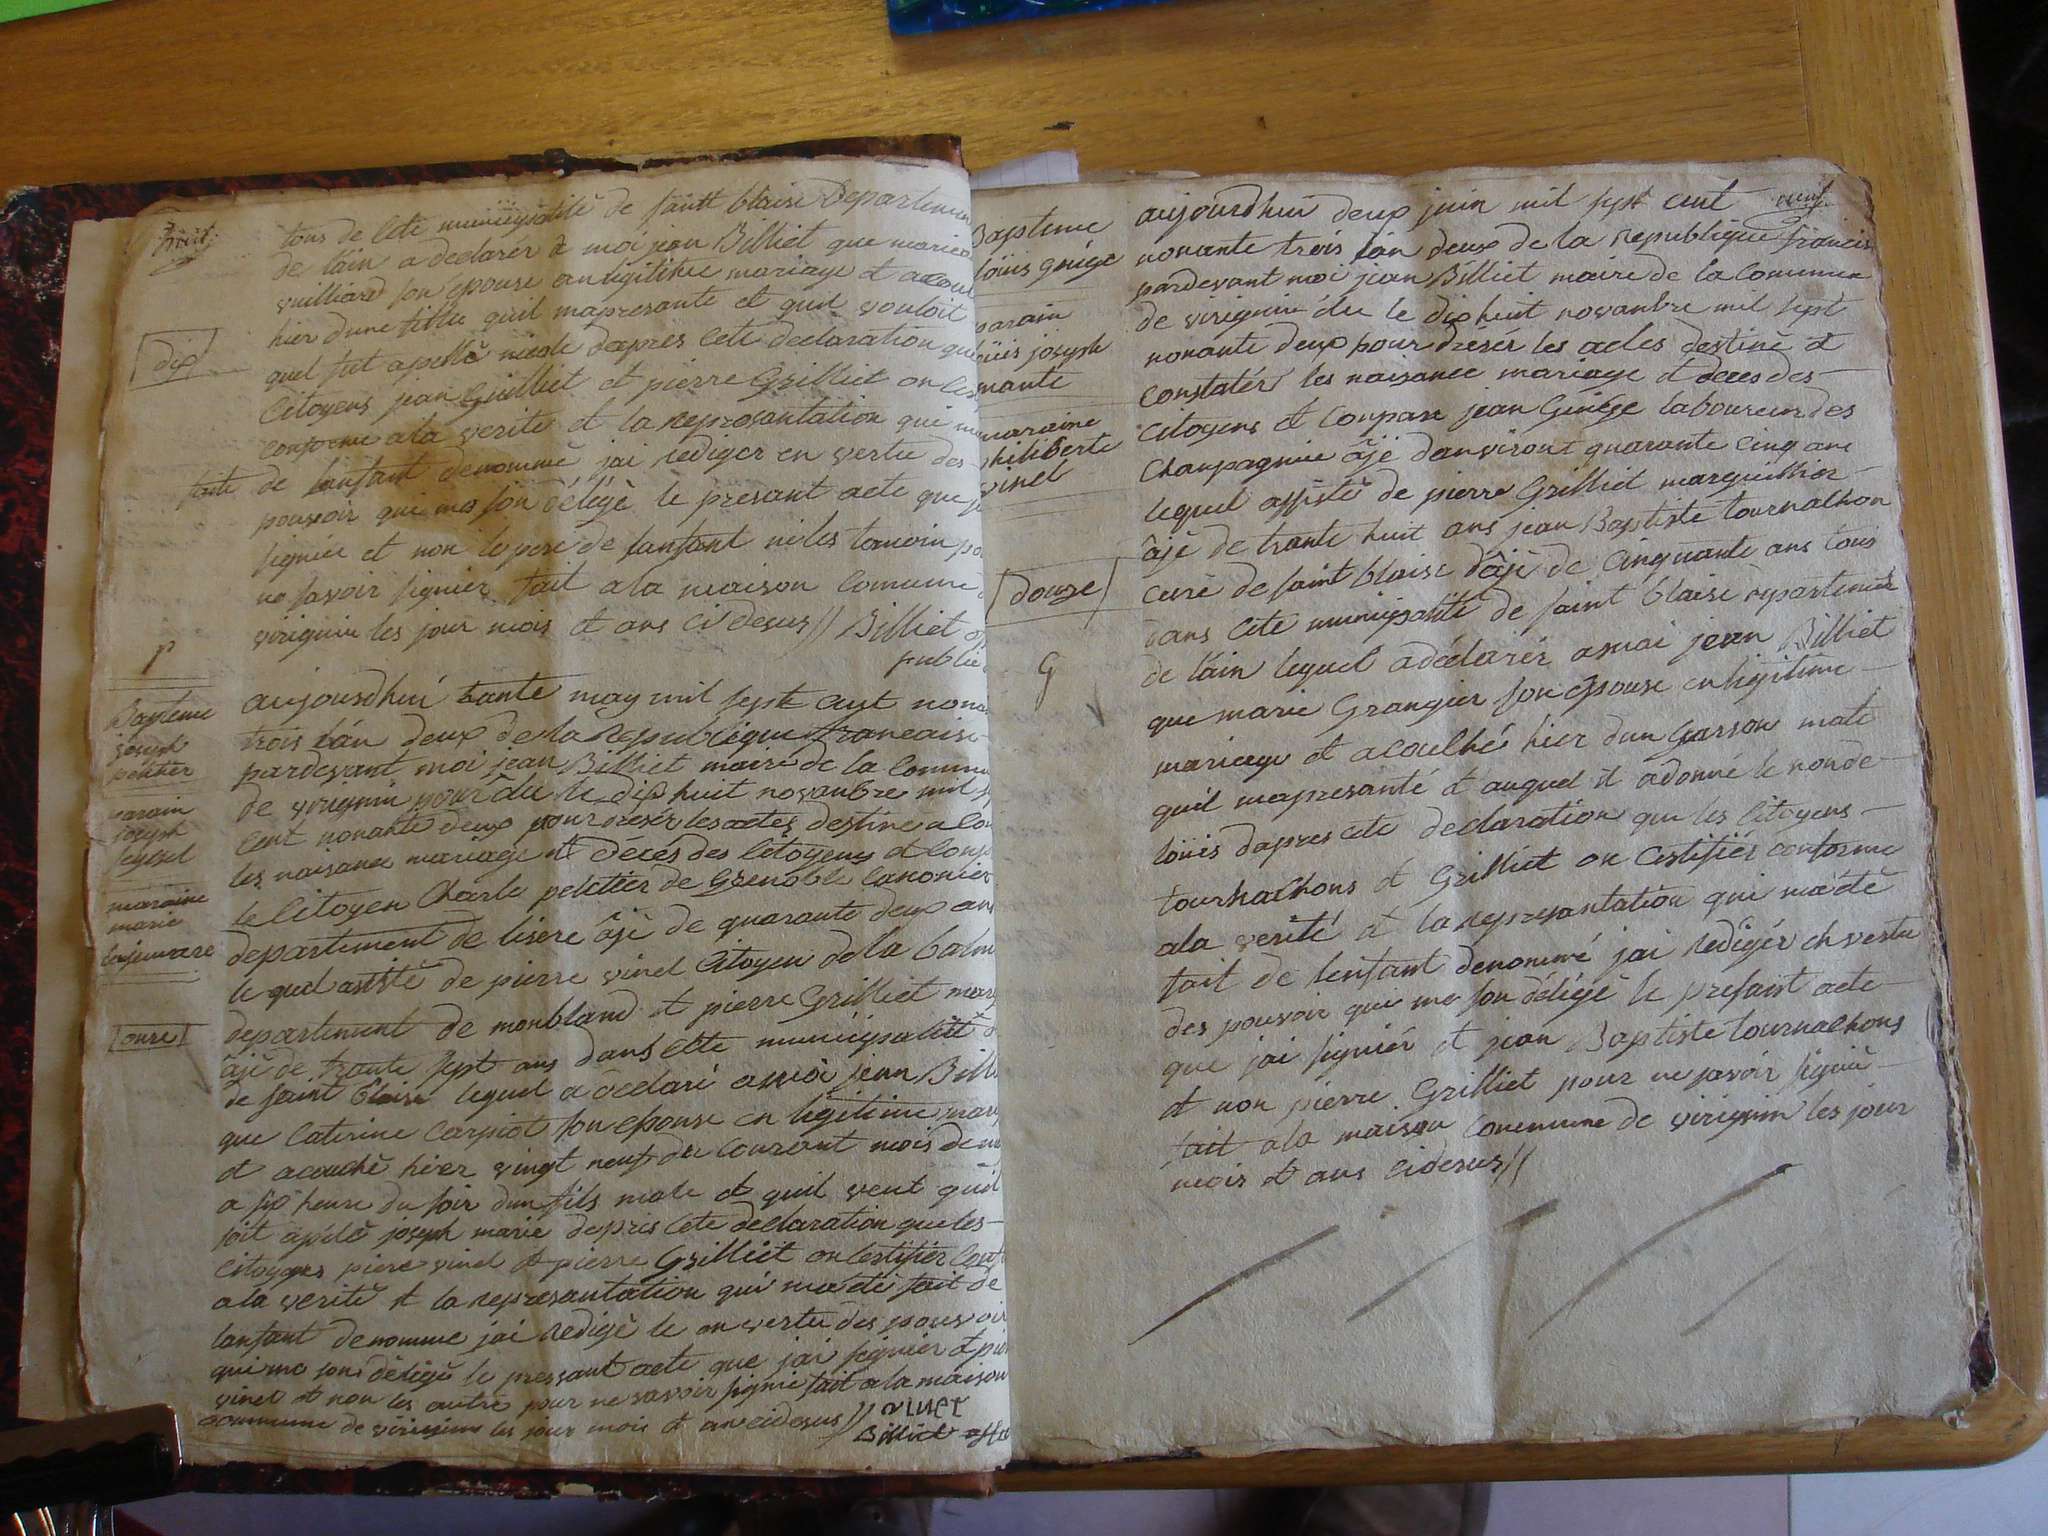 huit
tous de cete municipalité de saint blaise Departemen
de lain a declarer a moi jean Billiet que marie
vuilliard son epouse an legitime mariage et acouc
hier dune fillie quil mapresante et quil vouloit
dix
quel fut apellé nicole dapres cete declaration que
Citoyens jean Guilliet et pierre Grilliet on ces
conforme ala verite et la representation qui m
faite de lanfant denommé jai rediger en vertu des
pouvoir qui ma son délégé le presant acte que j
signiée et non le pere de lanfant ni les tomoin po
ne savoir signier fait ala maison Comune
virignin les jour mois et ans ci desus // Billiet of
public
P
aujourdhui trante may mil sept cent nona
Bapteme
joseph
peltier
trois lan deux de la Republique francaise
pardevant moi jean Billiet maire de la Commu
de virignin pour élu le dix huit novanbre mil s
parain
joseph
seyssel
cent nonante deux pour dresér les actes destiné a Con
les naisance mariage et decés des Citoyens et Conp
maraine
marie
le Citoyen Charle peletier de Grenoble Canonier
departement de lisere âjé de quarante deux ans
le quel asisté de pierre vinel Citoyen de la balm
onze
departement de monbland et pierre Grilliet mar
âjé de trante sept ans dans cette municipalité d
de saint blaise lequel a declaré a moi jean Bill
que Caterine Carpiot son epouse en legitime mari
et acouché hier vingt neuf du Courant mois de m
a six heure du soir dun fils male et quil veut quil
soit apélé joseph marie depris Cete declaration que les
Citoyens piere vinel et pierre Grilliet on Certifier Conf
ala verité et la representation qui ma été fait de
lanfant denomme jai redigé le en vertu des pouvoir
qui ma son délégé le pressant acte que jai signier et pier
vinel et non les autre pour ne savoir signié fait ala maison
commune de virignin les jour mois et an cidesus // vinel
Billiet off
neuf
Bapteme
loüis ginége
aujourdhui deux juin mil sept cent
nonante trois lan deux de la Republique francis
pardevant moi jean Billiet maire de la Commune
parain
loüis joseph
mante
de virignin élu le dix huit novanbre mil sept
nonante deux pour drésér les actes destiné et
constatér les naisance mariage et deces des
maraine
philiberte
vinel
Citoyens et Conpare jean Ginége laboureur des
Chanpagnie âjé danviront quarante Cinq ans
lequel assisté de pierre Grilliet marguillier
âjé de trante huit ans jean Baptiste tournachon
douze
curé de saint blaise dâjé de Cinquante ans tous
dans Cete municipalité de saint blaise departement
G
de lain lequel adéclarér a moi jean Billiet
que marie Grangier son epouse en legitime
mariage et acouché hier dun Garson male
quil mapresanté et auquel il adonné le non de
loüis dapres cete declaration que les Citoyens
tournachons et Grilliet on Certifiér conforme
ala verité et la representation qui ma été
fait de lenfant denommé jai redigér en vertu
des pouvoir qui ma son délégé le présant acte
que jai signiér et jean Baptiste tournachons
et non pierre Grilliet pour ne savoir signié
fait ala maison Commune de virignin les jour
mois et ans cidesus //